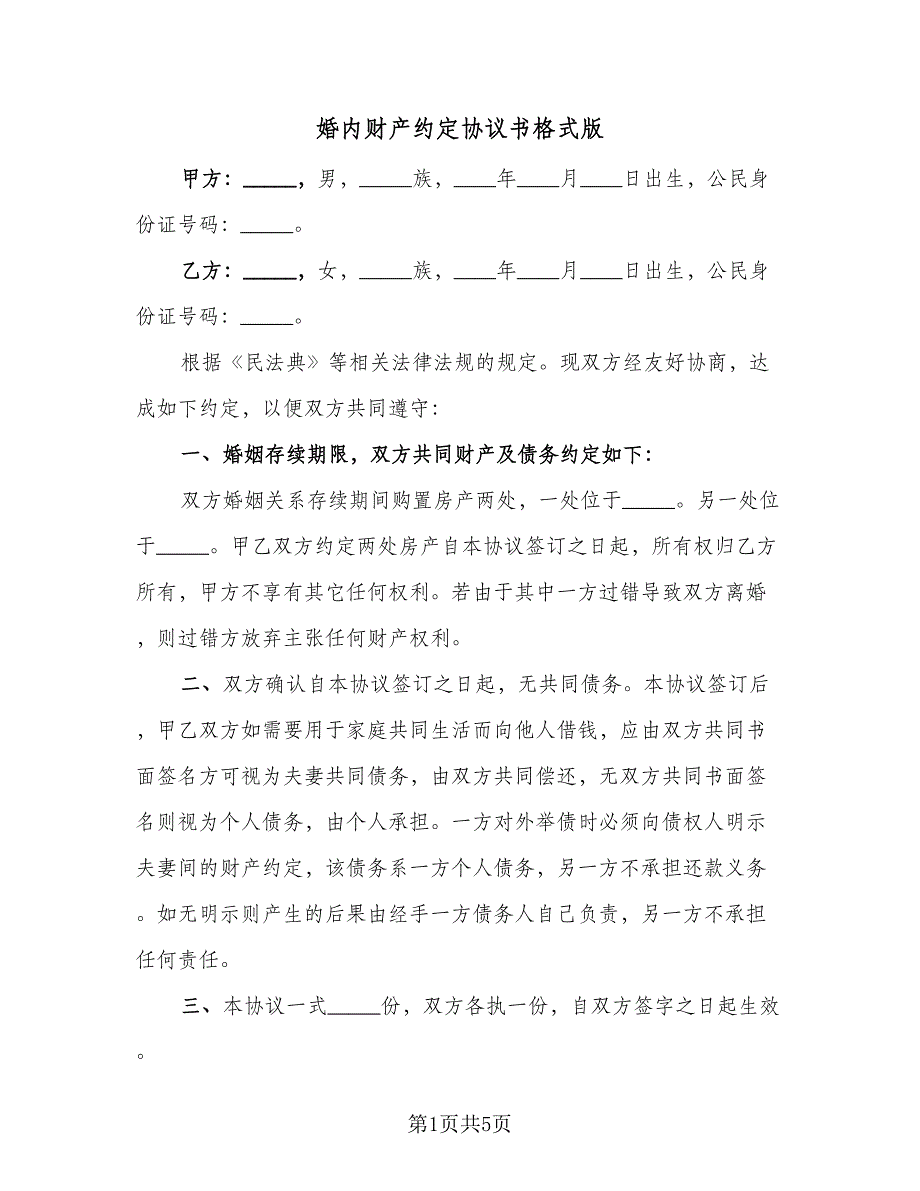 婚内财产约定协议书格式版
甲方：_____，男，_____族，____年____月____日出生，公民身
份证号码：_____。
乙方：_____，女，_____族，____年____月____日出生，公民身
份证号码：_____。
根据《民法典》等相关法律法规的规定。现双方经友好协商，达
成如下约定，以便双方共同遵守：
一、婚姻存续期限，双方共同财产及债务约定如下：
双方婚姻关系存续期间购置房产两处，一处位于_____。另一处位
于_____。甲乙双方约定两处房产自本协议签订之日起，所有权归乙方
所有，甲方不享有其它任何权利。若由于其中一方过错导致双方离婚
，则过错方放弃主张任何财产权利。
二、双方确认自本协议签订之日起，无共同债务。本协议签订后
，甲乙双方如需要用于家庭共同生活而向他人借钱，应由双方共同书
面签名方可视为夫妻共同债务，由双方共同偿还，无双方共同书面签
名则视为个人债务，由个人承担。一方对外举债时必须向债权人明示
夫妻间的财产约定，该债务系一方个人债务，另一方不承担还款义务
。如无明示则产生的后果由经手一方债务人自己负责，另一方不承担
任何责任。
三、本协议一式_____份，双方各执一份，自双方签字之日起生效
。
第1页共5页